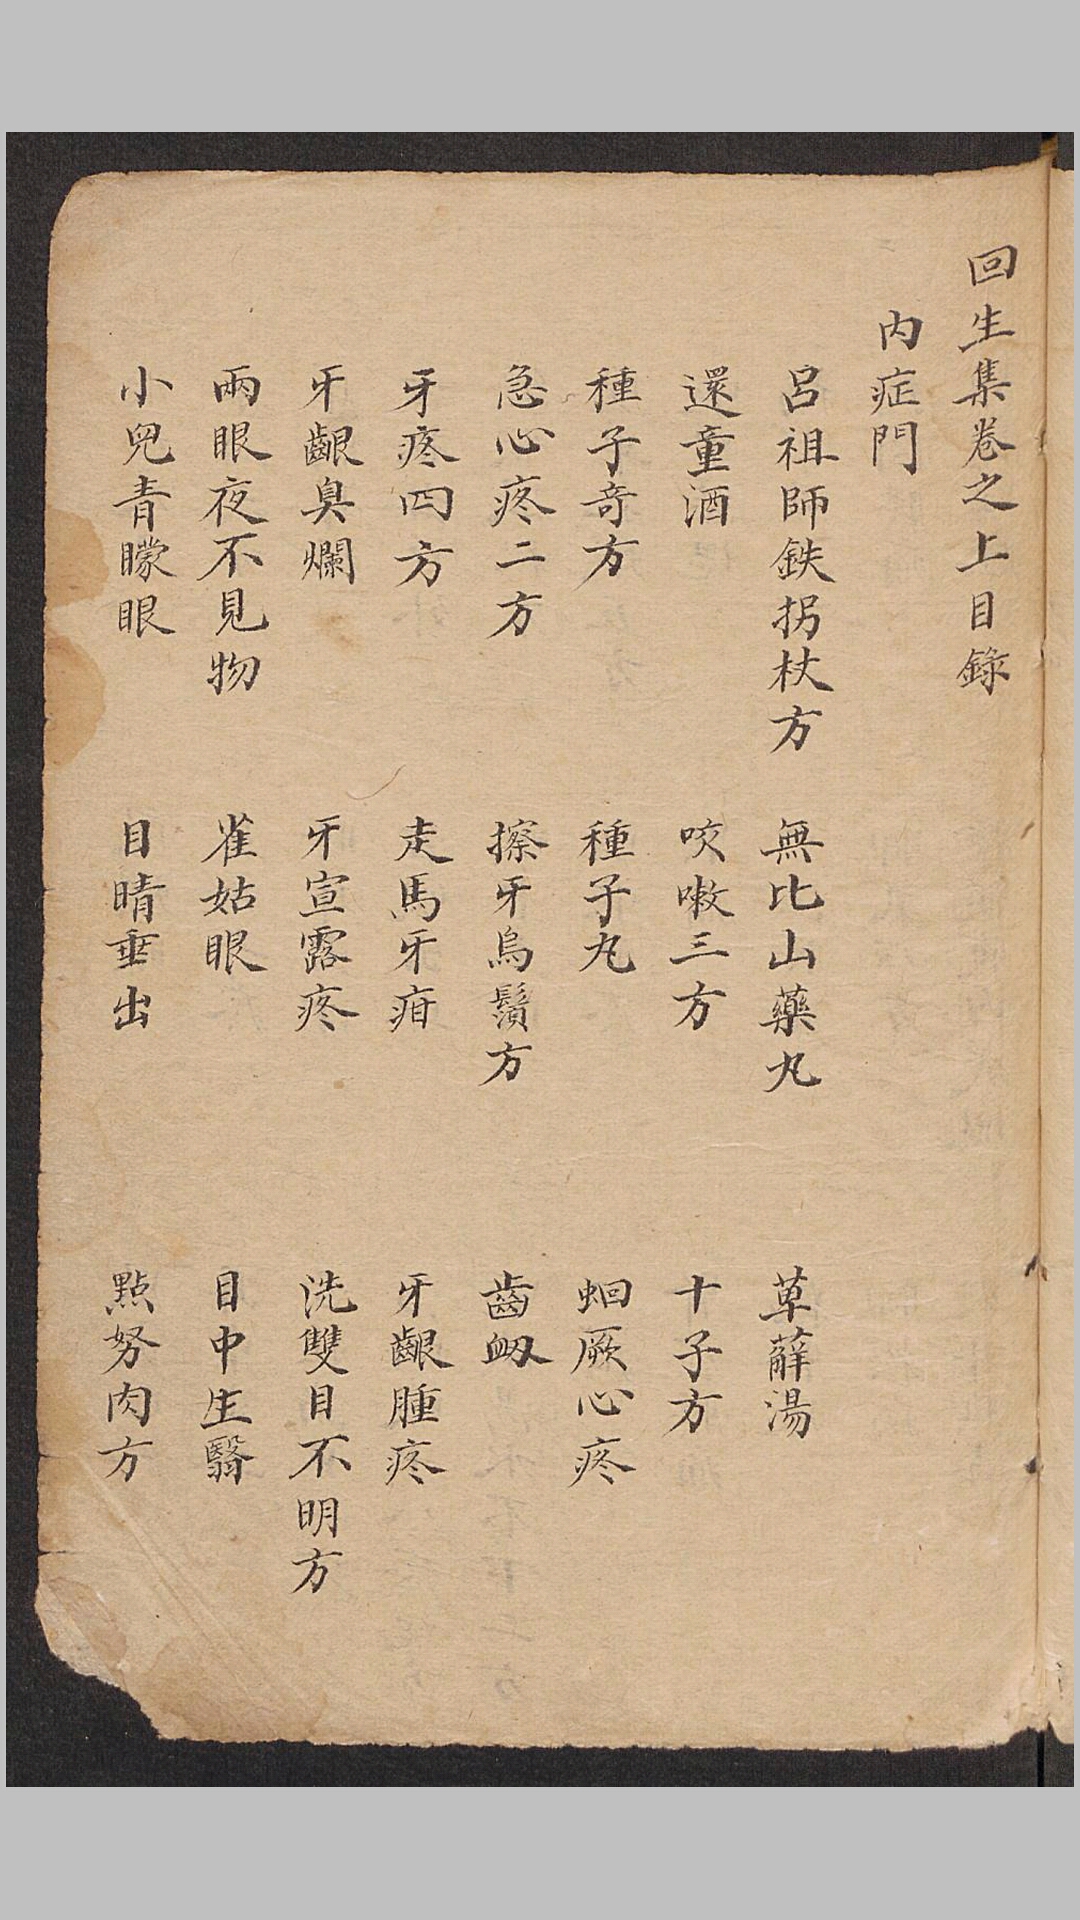 回生集卷之上目錄
內症門
呂祖師鉄拐杖方 無比山藥丸 草薢湯
還童酒 咳嗽三方 十子方
種子奇方 種子丸 蛔厥心疼
急心疼二方 擦牙烏鬚方 齒衂
牙疼四方 走馬牙疳 牙齦腫疼
牙齦臭爛 牙宣露疼 洗雙目不明方
兩眼夜不見物 雀姑眼 目中生翳
小兒青矇眼 目睛垂出 點努肉方